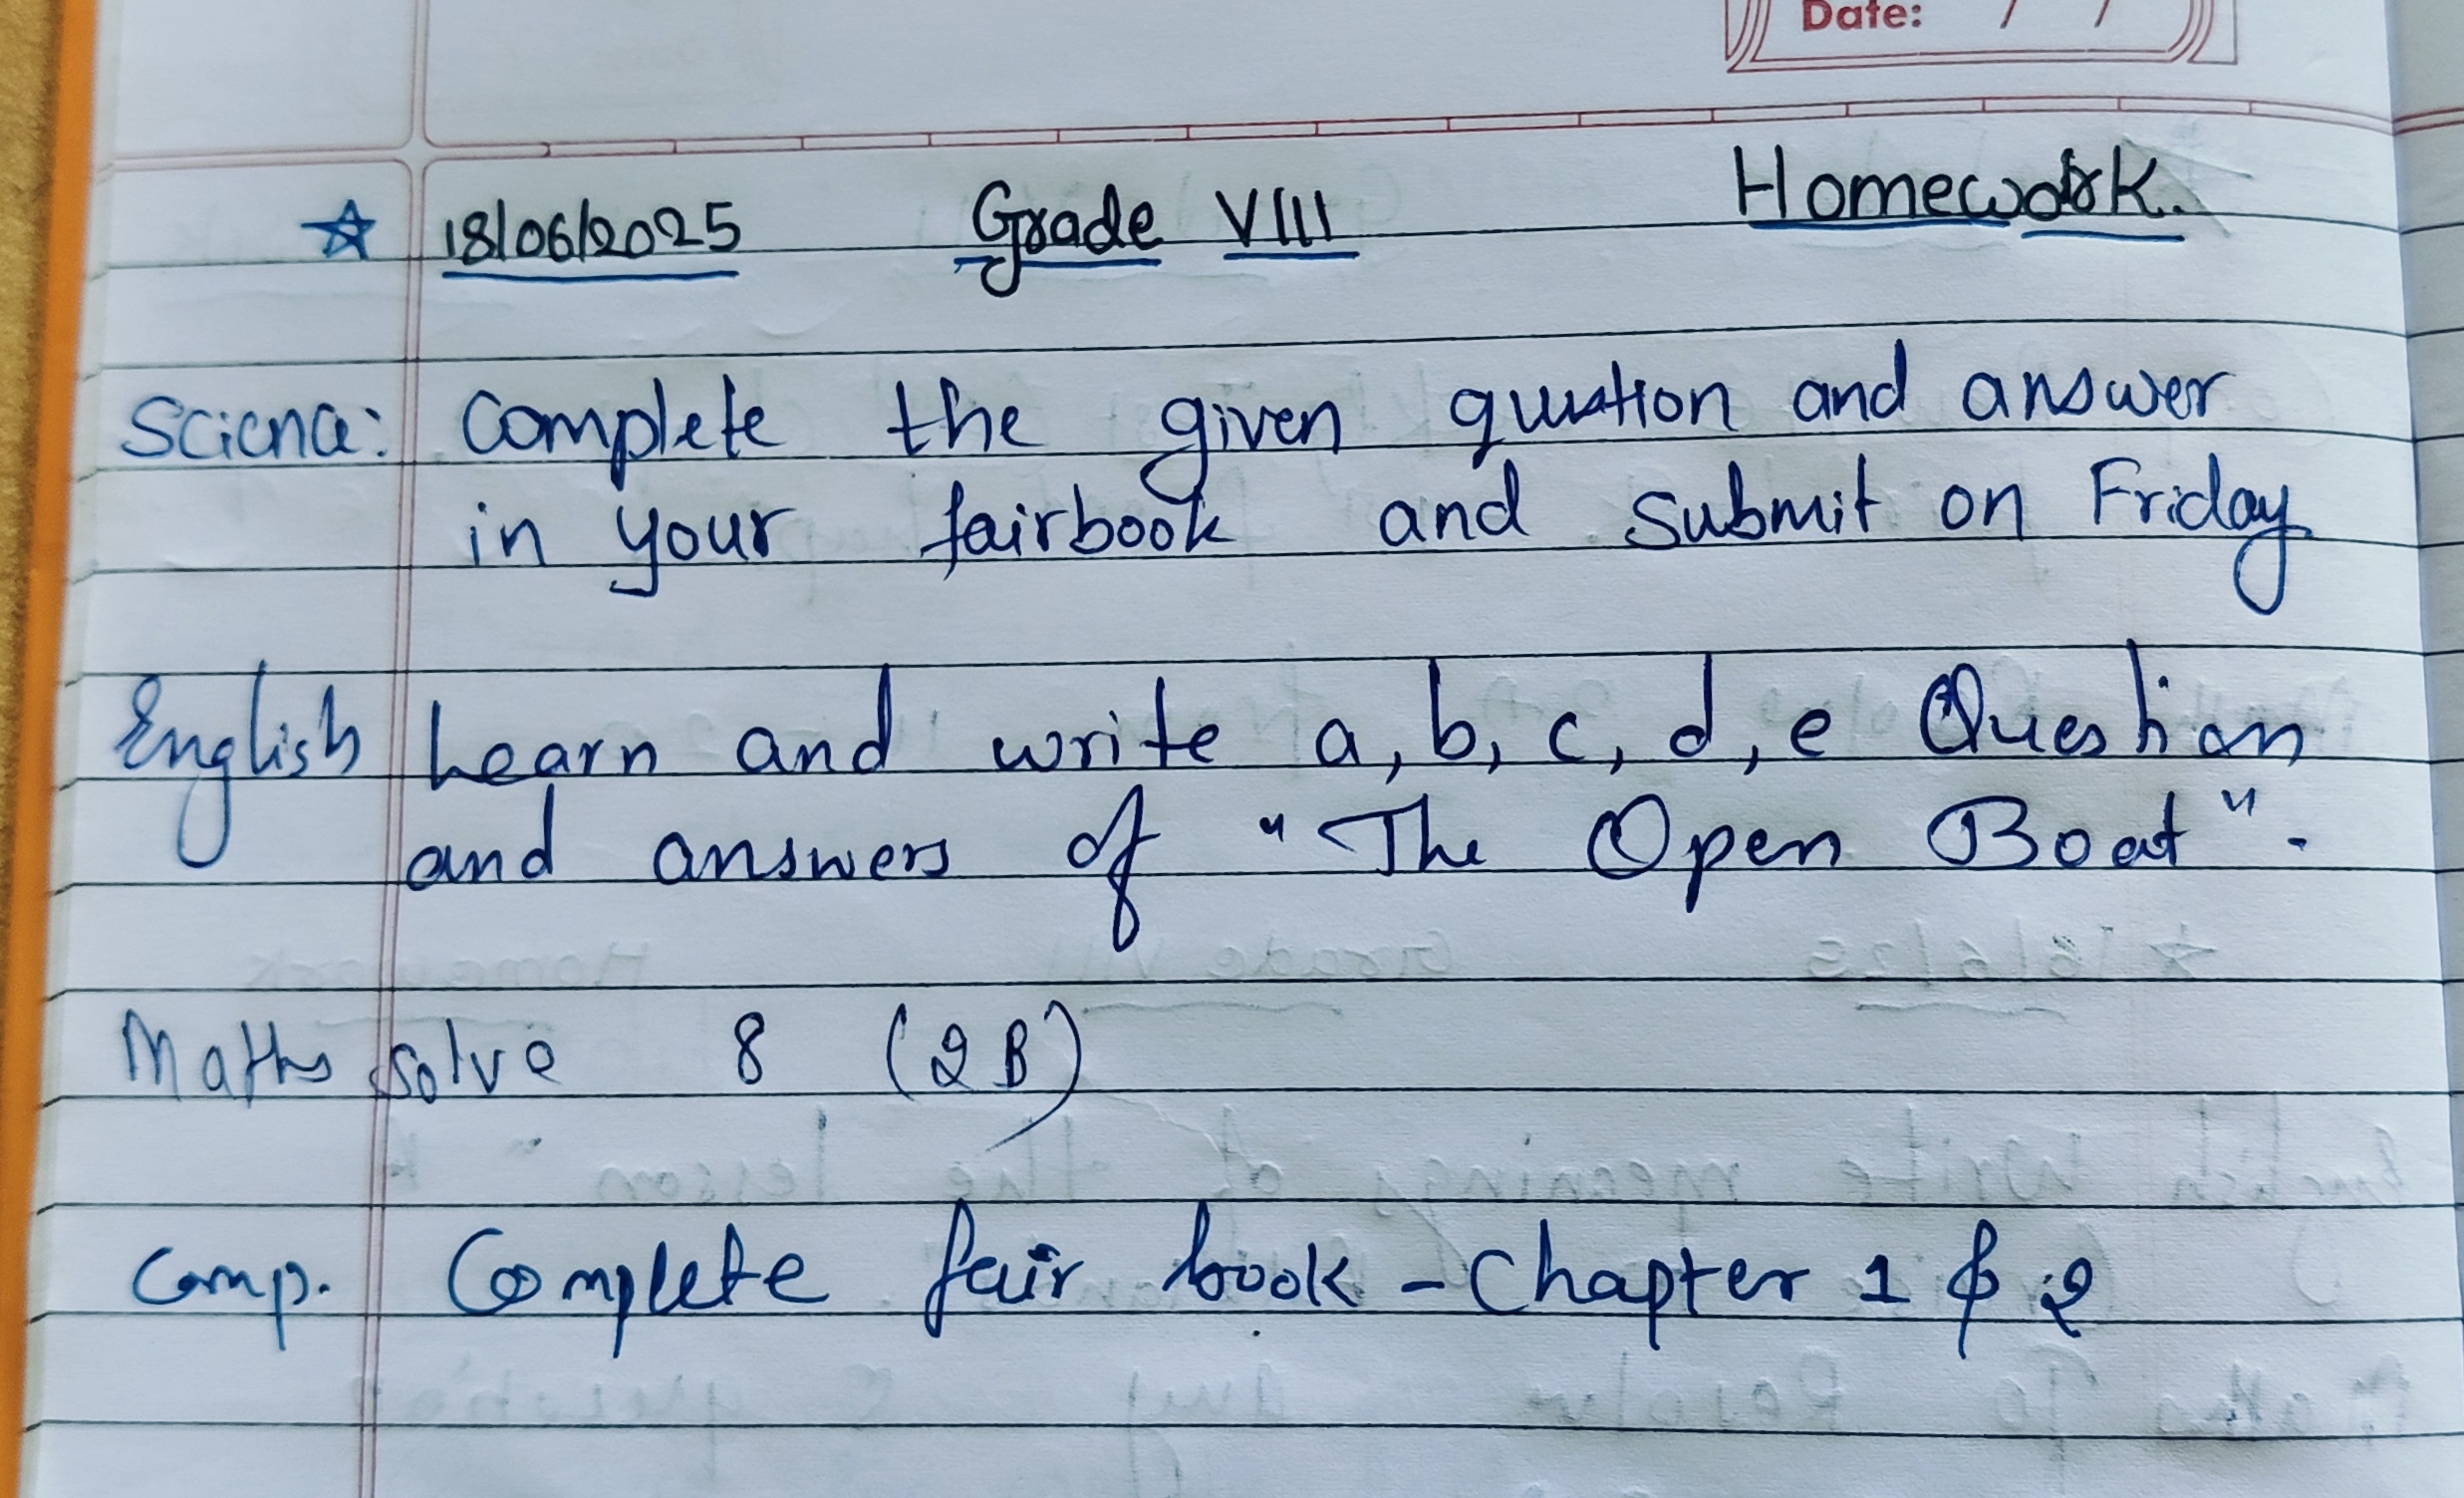 Date: / /
☆ 18/06/2025 Grade VIII Homework.
Science: Complete the given question and answer
in your fairbook and submit on Friday
English Learn and write a, b, c, d, e Question
and answers of "The Open Boat".
Maths solve 8 (2B)
Comp. Complete fair book - Chapter 1 & 2